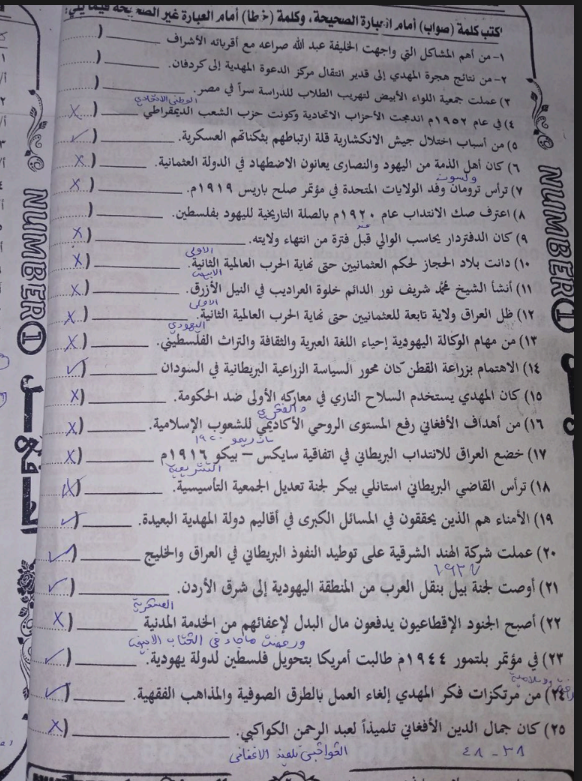 اكتب كلمة (صواب) أمام العبارة الصحيحة، وكلمة (خطأ) أمام العبارة غير الصحيحة فيما يلي:
١- من أهم المشاكل التي واجهت الخليفة عبد الله صراعه مع أقربائه الأشراف ______ (
٢- من نتائج هجرة المهدي إلى قدير انتقال مركز الدعوة المهدية إلى كردفان. ______ (
٣) عملت جمعية اللواء الأبيض لتهريب الطلاب للدراسة سراً في مصر. ______ (
الوطني الاتحادي
٤) في عام ١٩٥٢م اندمجت الأحزاب الاتحادية وكونت حزب الشعب الديمقراطي ______ ( X
٥) من أسباب اختلال جيش الانكشارية قلة ارتباطهم بثكناتهم العسكرية. ______ ( ✓
٦) كان أهل الذمة من اليهود والنصارى يعانون الاضطهاد في الدولة العثمانية. ______ ( X
ولسون
٧) ترأس ترومان وفد الولايات المتحدة في مؤتمر صلح باريس ١٩١٩م. ______ ( X
٨) اعترف صك الانتداب عام ١٩٢٠م بالصلة التاريخية لليهود بفلسطين. ______ (
عند
٩) كان الدفتردار يحاسب الوالي قبل فترة من انتهاء ولايته. ______ ( X
الاولى
١٠) دانت بلاد الحجاز لحكم العثمانيين حتى نهاية الحرب العالمية الثانية. ______ ( X
الابيض
١١) أنشأ الشيخ محمد شريف نور الدائم خلوة العراديب في النيل الأزرق. ______ ( X
الاولى
١٢) ظل العراق ولاية تابعة للعثمانيين حتى نهاية الحرب العالمية الثانية. ______ ( X
اليهودي
١٣) من مهام الوكالة اليهودية إحياء اللغة العبرية والثقافة والتراث الفلسطيني. ______ ( X
١٤) الاهتمام بزراعة القطن كان محور السياسة الزراعية البريطانية في السودان ______ ( ✓
١٥) كان المهدي يستخدم السلاح الناري في معاركه الأولى ضد الحكومة. ______ ( X
والفكري
١٦) من أهداف الأفغاني رفع المستوى الروحي الأكاديمي للشعوب الإسلامية. ______ ( X
سان ريمو ١٩٢٠
١٧) خضع العراق للانتداب البريطاني في اتفاقية سايكس – بيكو ١٩١٦م ______ ( X
التشريعية
١٨) ترأس القاضي البريطاني استانلي بيكر لجنة تعديل الجمعية التأسيسية. ______ ( X
١٩) الأمناء هم الذين يحققون في المسائل الكبرى في أقاليم دولة المهدية البعيدة. ______ ( ✓
٢٠) عملت شركة الهند الشرقية على توطيد النفوذ البريطاني في العراق والخليج ______ ( ✓
١٩٣٧
٢١) أوصت لجنة بيل بنقل العرب من المنطقة اليهودية إلى شرق الأردن. ______ ( ✓
العسكرية
٢٢) أصبح الجنود الإقطاعيون يدفعون مال البدل لإعفائهم من الخدمة المدنية ______ ( X
ورفضت ماجاء في الكتاب الابيض
٢٣) في مؤتمر بلتمور ١٩٤٤م طالبت أمريكا بتحويل فلسطين لدولة يهودية. ______ ( ✓
٢٤) من مرتكزات فكر المهدي إلغاء العمل بالطرق الصوفية والمذاهب الفقهية. ______ ( ✓
٢٥) كان جمال الدين الأفغاني تلميذاً لعبد الرحمن الكواكبي. ______ ( X
الكواكبي تلميذ الافغاني
٣٨ - ٤٨
NUMBER 1
NUMBER 1